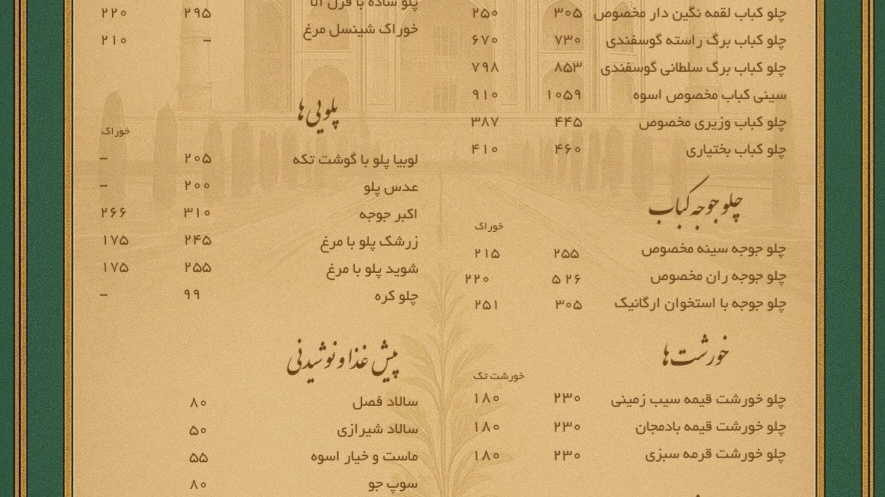 چلو کباب لقمه نگین دار مخصوص ۳۰۵ ۲۵۰
چلو کباب برگ راسته گوسفندی ۷۳۰ ۶۷۰
چلو کباب برگ سلطانی گوسفندی ۸۵۳ ۷۹۸
سینی کباب مخصوص اسوه ۱۰۵۹ ۹۱۰
چلو کباب وزیری مخصوص ۴۴۵ ۳۸۷
چلو کباب بختیاری ۴۶۰ ۴۱۰
چلو جوجه کباب
خوراک
چلو جوجه سینه مخصوص ۲۵۵ ۲۱۵
چلو جوجه ران مخصوص ۵ ۲۶ ۲۲۰
چلو جوجه با استخوان ارگانیک ۳۰۵ ۲۵۱
خورشت ها
خورشت تک
چلو خورشت قیمه سیب زمینی ۲۳۰ ۱۸۰
چلو خورشت قیمه بادمجان ۲۳۰ ۱۸۰
چلو خورشت قرمه سبزی ۲۳۰ ۱۸۰
پلو ساده با قزل آلا ۲۹۵ ۲۲۰
خوراک شینسل مرغ – ۲۱۰
پلویی ها
خوراک
لوبیا پلو با گوشت تکه ۲۰۵ –
عدس پلو ۲۰۰ –
اکبر جوجه ۳۱۰ ۲۶۶
زرشک پلو با مرغ ۲۴۵ ۱۷۵
شوید پلو با مرغ ۲۵۵ ۱۷۵
چلو کره ۹۹ –
پیش غذا و نوشیدنی
سالاد فصل ۸۰
سالاد شیرازی ۵۰
ماست و خیار اسوه ۵۵
سوپ جو ۸۰